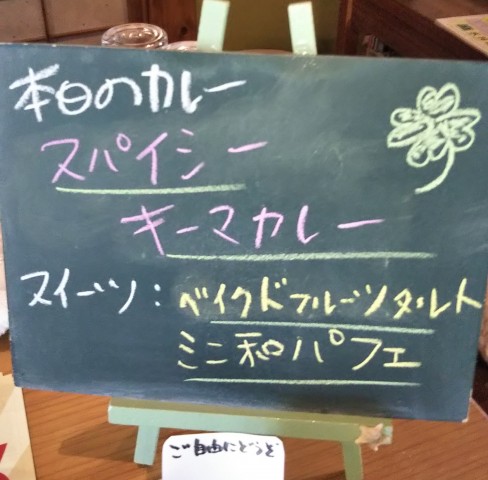 本日のカレー
スパイシー
キーマカレー
スイーツ：ベイクドフルーツタルト
ミニ和パフェ
ご自由にどうぞ